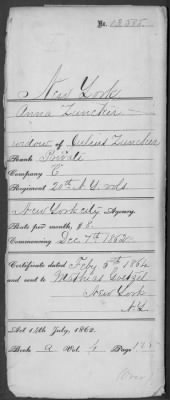 No. 12.585.
New York
Anna Zuncker
widow of Julius Zuncker
Rank Private
Company C
Regiment 20th N.Y. vols
New York city Agency.
Rate per month, $8.
Commencing Dec. 7th 1862
Certificate dated Feby 5th 1864
and sent to Mathias Goetzel
New York
N.Y.
Act 14th July, 1862.
Book A Vol. 4 Page